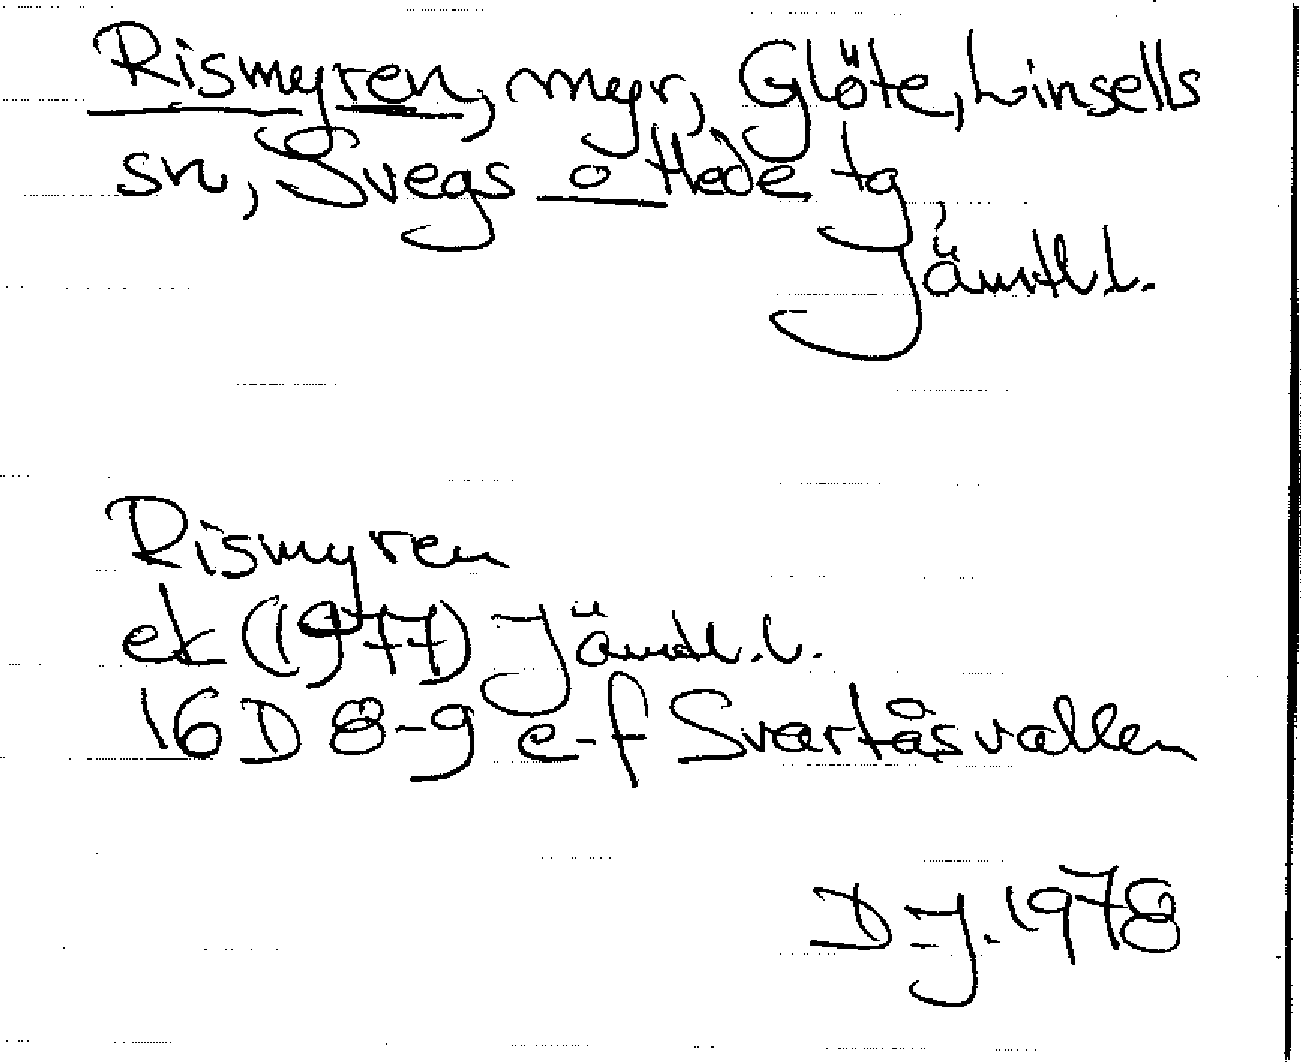 Rismyren, myr, Glöte, Linsells
sn, Svegs o Hede tg
Jämtl.l.
Rismyren
ek (1977) Jämtl.l.
16D 8-9 e-f Svartåsvallen
DJ. 1978